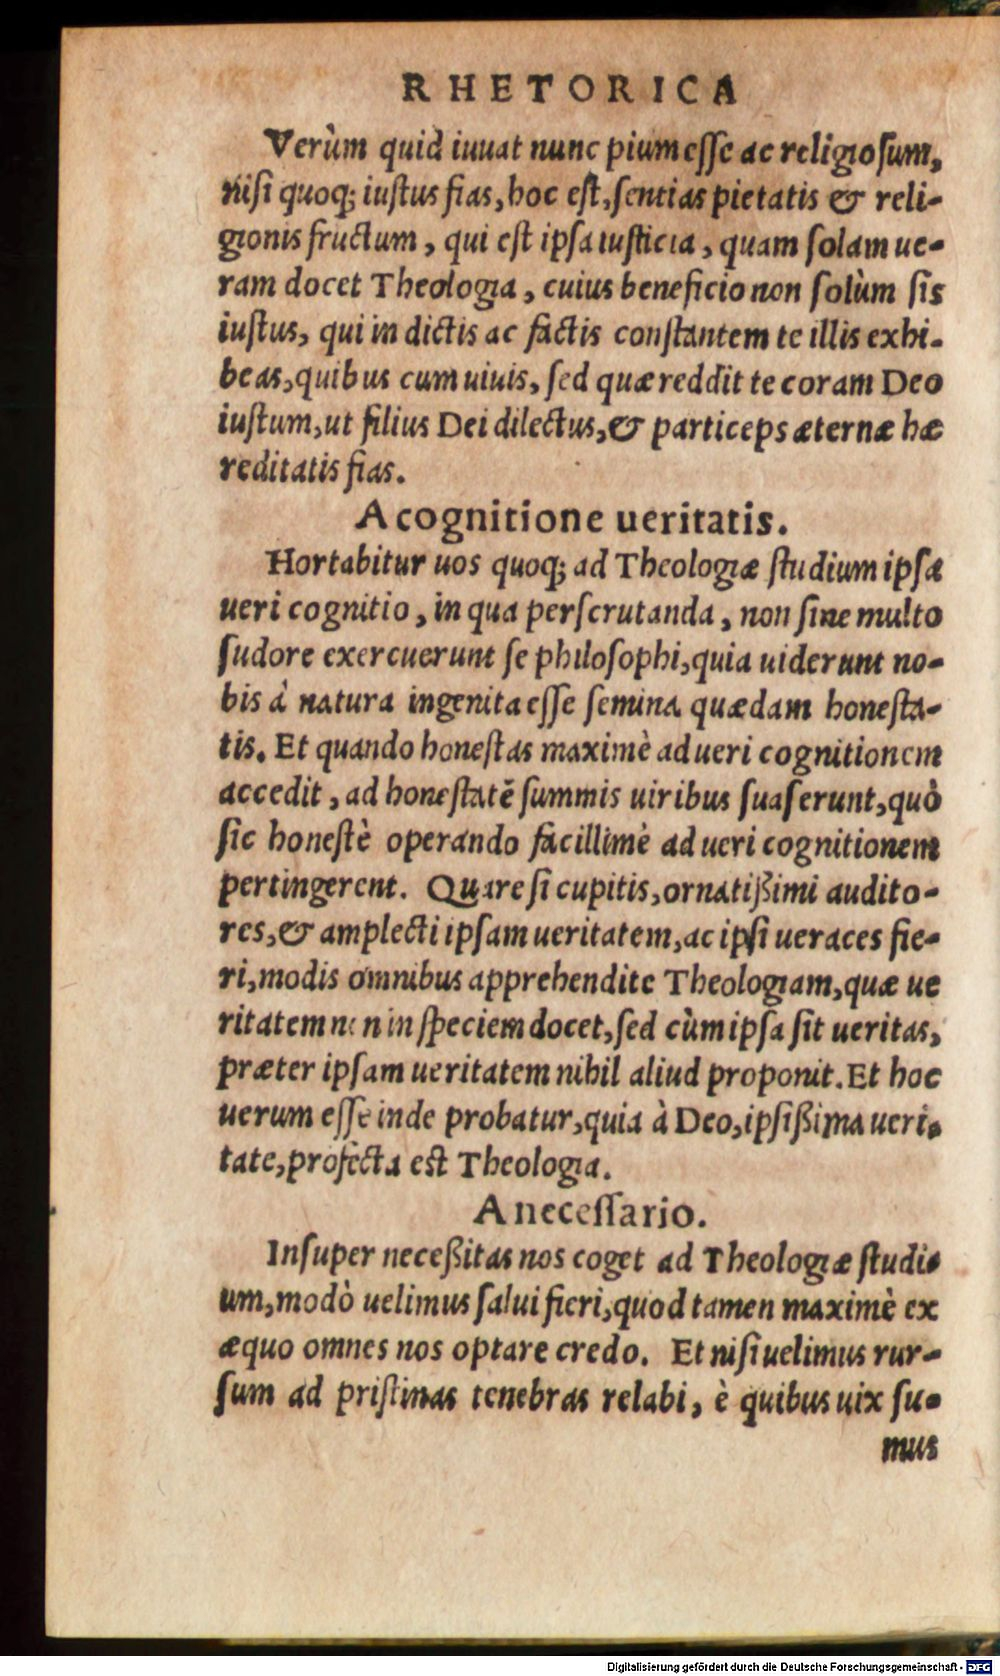 RHETORICA
Verùm quid iuuat nunc pium eſſe ac religioſum,
niſi quoq; iuſtus fias, hoc eſt, ſentias pietatis & reli-
gionis fructum, qui eſt ipſa iuſticia, quam ſolam ue-
ram docet Theologia, cuius beneficio non ſolùm ſis
iuſtus, qui in dictis ac factis conſtantem te illis exhi-
beas, quibus cum uiuis, ſed quæ reddit te coram Deo
iuſtum, ut filius Dei dilectus, & particeps æternæ hæ
reditatis fias.
A cognitione ueritatis.
Hortabitur uos quoq; ad Theologiæ ſtudium ipſa
ueri cognitio, in qua perſcrutanda, non ſine multo
ſudore exercuerunt ſe philoſophi, quia uiderunt no-
bis à natura ingenita eſſe ſemina quædam honeſta-
tis. Et quando honeſtas maximè ad ueri cognitionem
accedit, ad honeſtatē ſummis uiribus ſuaſerunt, quò
ſic honeſtè operando facillimè ad ueri cognitionem
pertingerent. Quare ſi cupitis, ornatißimi audito-
res, & amplecti ipſam ueritatem, ac ipſi ueraces fie-
ri, modis omnibus apprehendite Theologiam, quæ ue
ritatem non in ſpeciem docet, ſed cùm ipſa ſit ueritas,
præter ipſam ueritatem nihil aliud proponit. Et hoc
uerum eſſe inde probatur, quia à Deo, ipſißima ueri-
tate, profecta eſt Theologia.
A neceſſario.
Inſuper neceßitas nos coget ad Theologiæ ſtudi-
um, modò uelimus ſalui fieri, quod tamen maximè ex
æquo omnes nos optare credo. Et niſi uelimus rur-
ſum ad priſtinas tenebras relabi, è quibus uix ſu-
mus
Digitalisierung gefördert durch die Deutsche Forschungsgemeinschaft - DFG